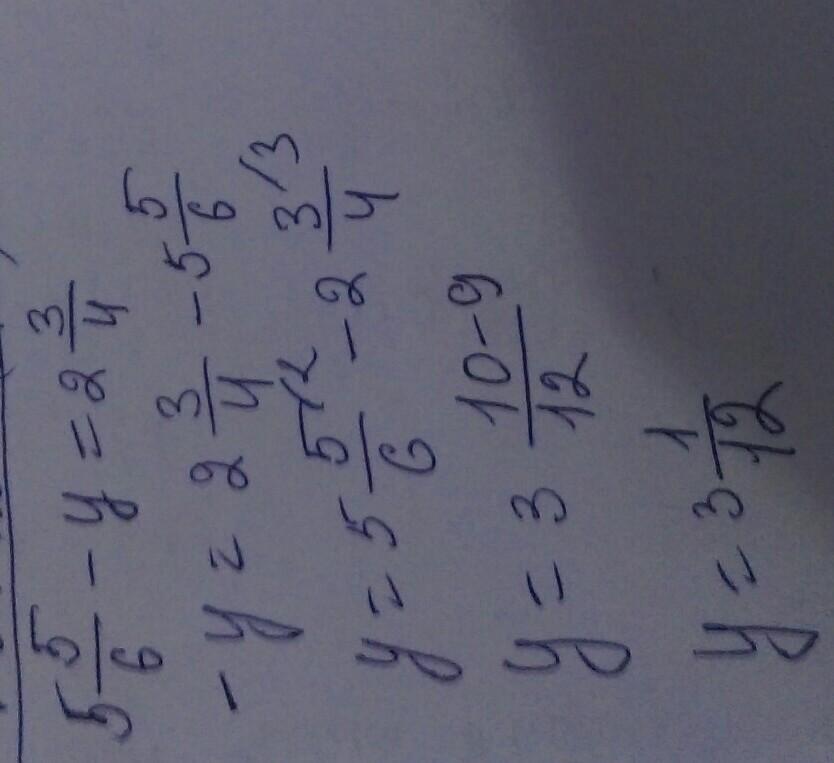 5 5/6 - y = 2 3/4
-y = 2 3/4 - 5 5/6
y = 5 5/6 /2 - 2 3/4 /3
y = 3 10-9/12
y = 3 1/12